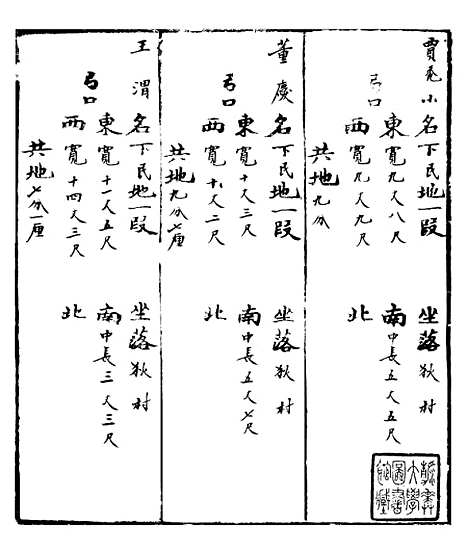 賈毛小名下民地一段 坐落狄村
東寬九丈八尺 南中長五丈五尺
弓口
西寬九丈九尺 北
共地九分
董慶名下民地一段 坐落狄村
東寬十丈三尺 南中長五丈七尺
弓口
西寬十丈二尺 北
共地九分七厘
王渭名下民地一段 坐落狄村
東寬十一丈五尺 南中長三丈三尺
弓口
西寬十四丈三尺 北
共地七分一厘
大學
圖書